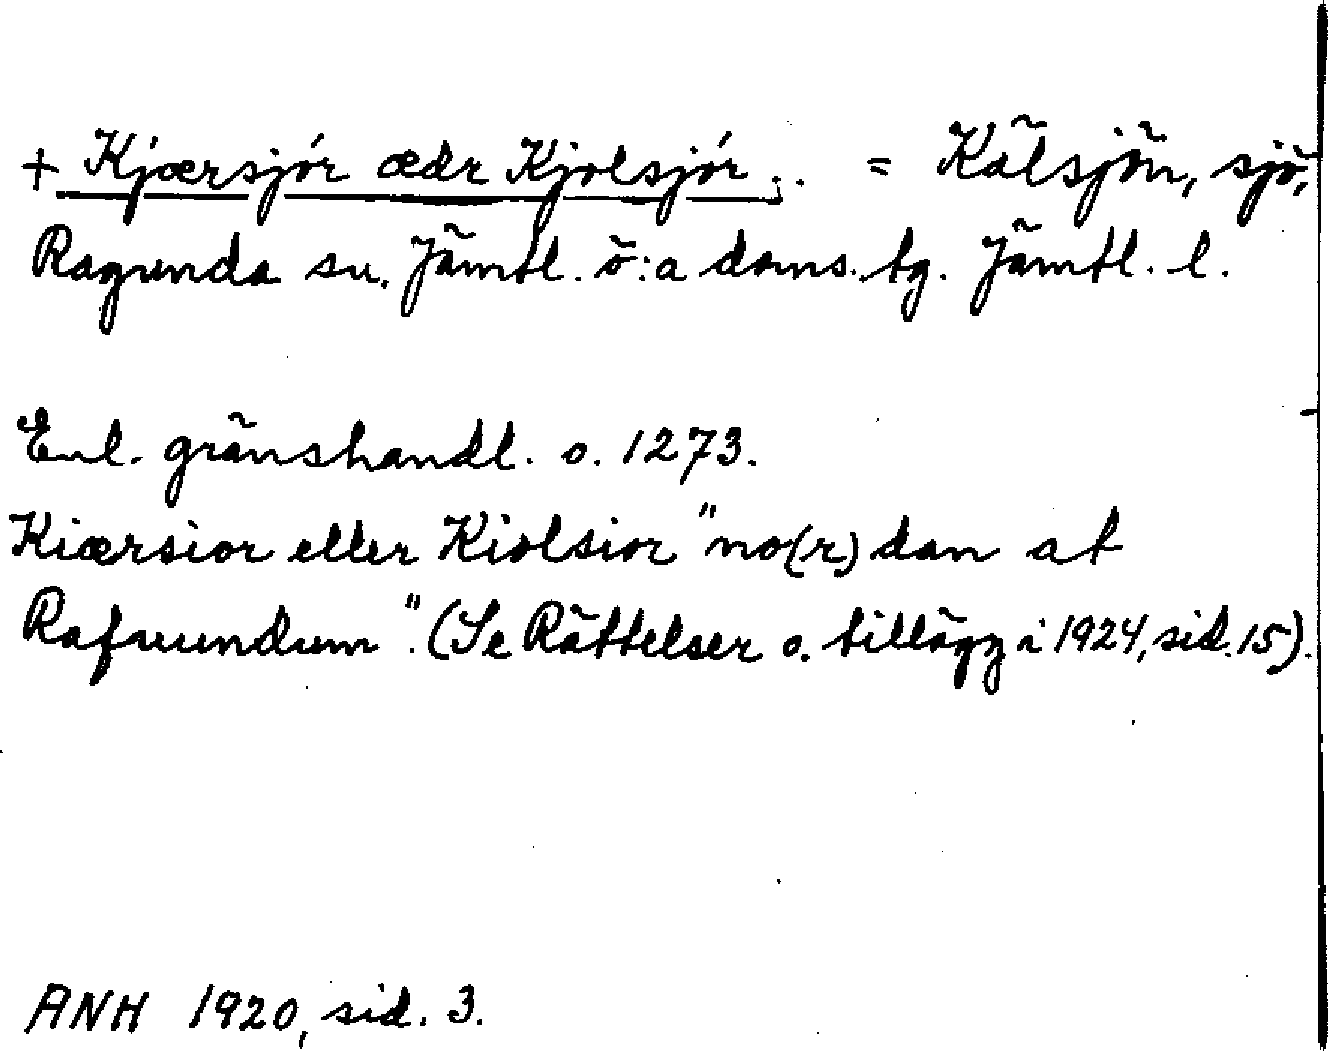 + Kjærsjór ædr Kjolsjór .. = Kälsjön, sjö,
Ragunda sn. Jämtl. ö:a doms. tg. Jämtl. l.
Enl. gränshandl. o. 1273.
Kiærsior eller Kiolsior "no(r)dan at
Rafnundum". (Se Rättelser o. tillägg i 1924, sid. 15).
ANH 1920, sid. 3.